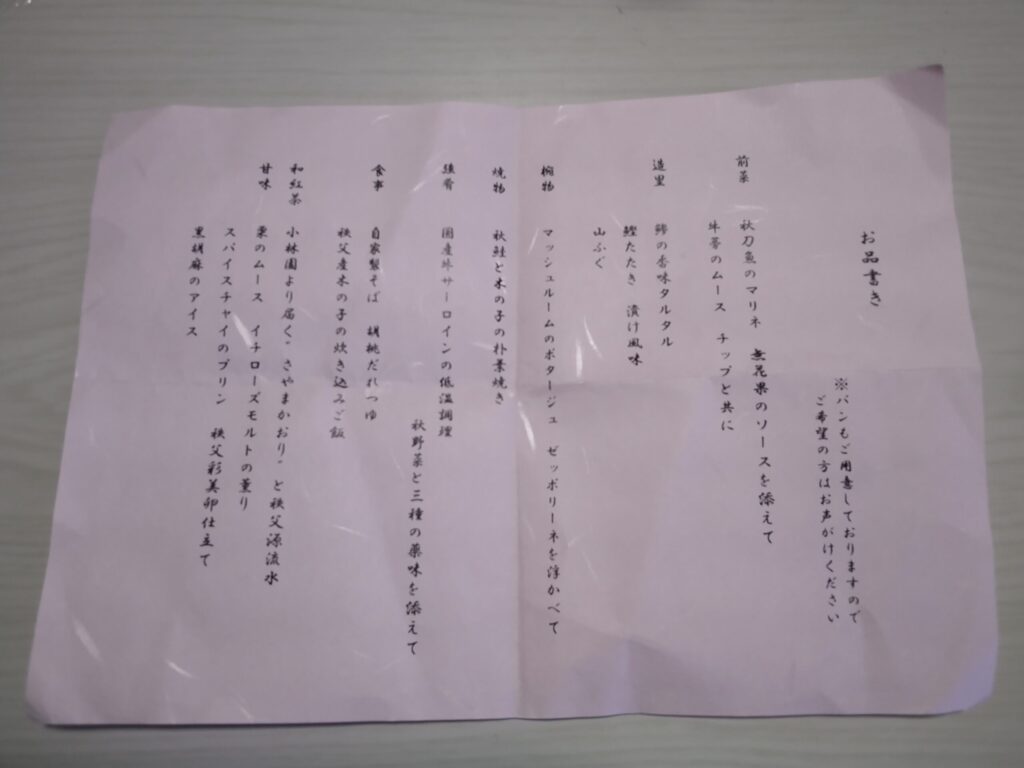 お品書き
※パンもご用意しておりますので
ご希望の方はお声がけください
前菜 秋刀魚のマリネ 無花果のソースを添えて
牛蒡のムース チップと共に
造里 鯵の香味タルタル
鰹たたき 漬け風味
山ふぐ
椀物 マッシュルームのポタージュ ゼッポリーネを浮かべて
焼物 秋鮭と木の子の朴葉焼き
強肴 国産牛サーロインの低温調理
秋野菜と三種の薬味を添えて
食事 自家製そば 胡桃だれつゆ
秩父産木の子の炊き込みご飯
和紅茶 小林園より届く"さやまかおり"と秩父源流水
甘味 栗のムース イチローズモルトの薫り
スパイスチャイのプリン 秩父彩美卵仕立て
黒胡麻のアイス